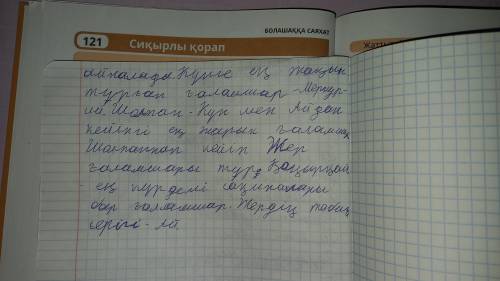 БОЛАШАҚҚА САЯХАТ
121 Сиқырлы қорап
айналада Күнге ең жақын
тұрған ғаламшар - Меркур-
ий. Шолпан - Күн мен Айдан
кейінгі ең жарық ғаламшар
Шолпаннан кейін Жер
ғаламшары тұр. Қоңырқай
ең күрделі сақиналары
бар ғаламшар. Жердің табиғ
серігі - Ай.